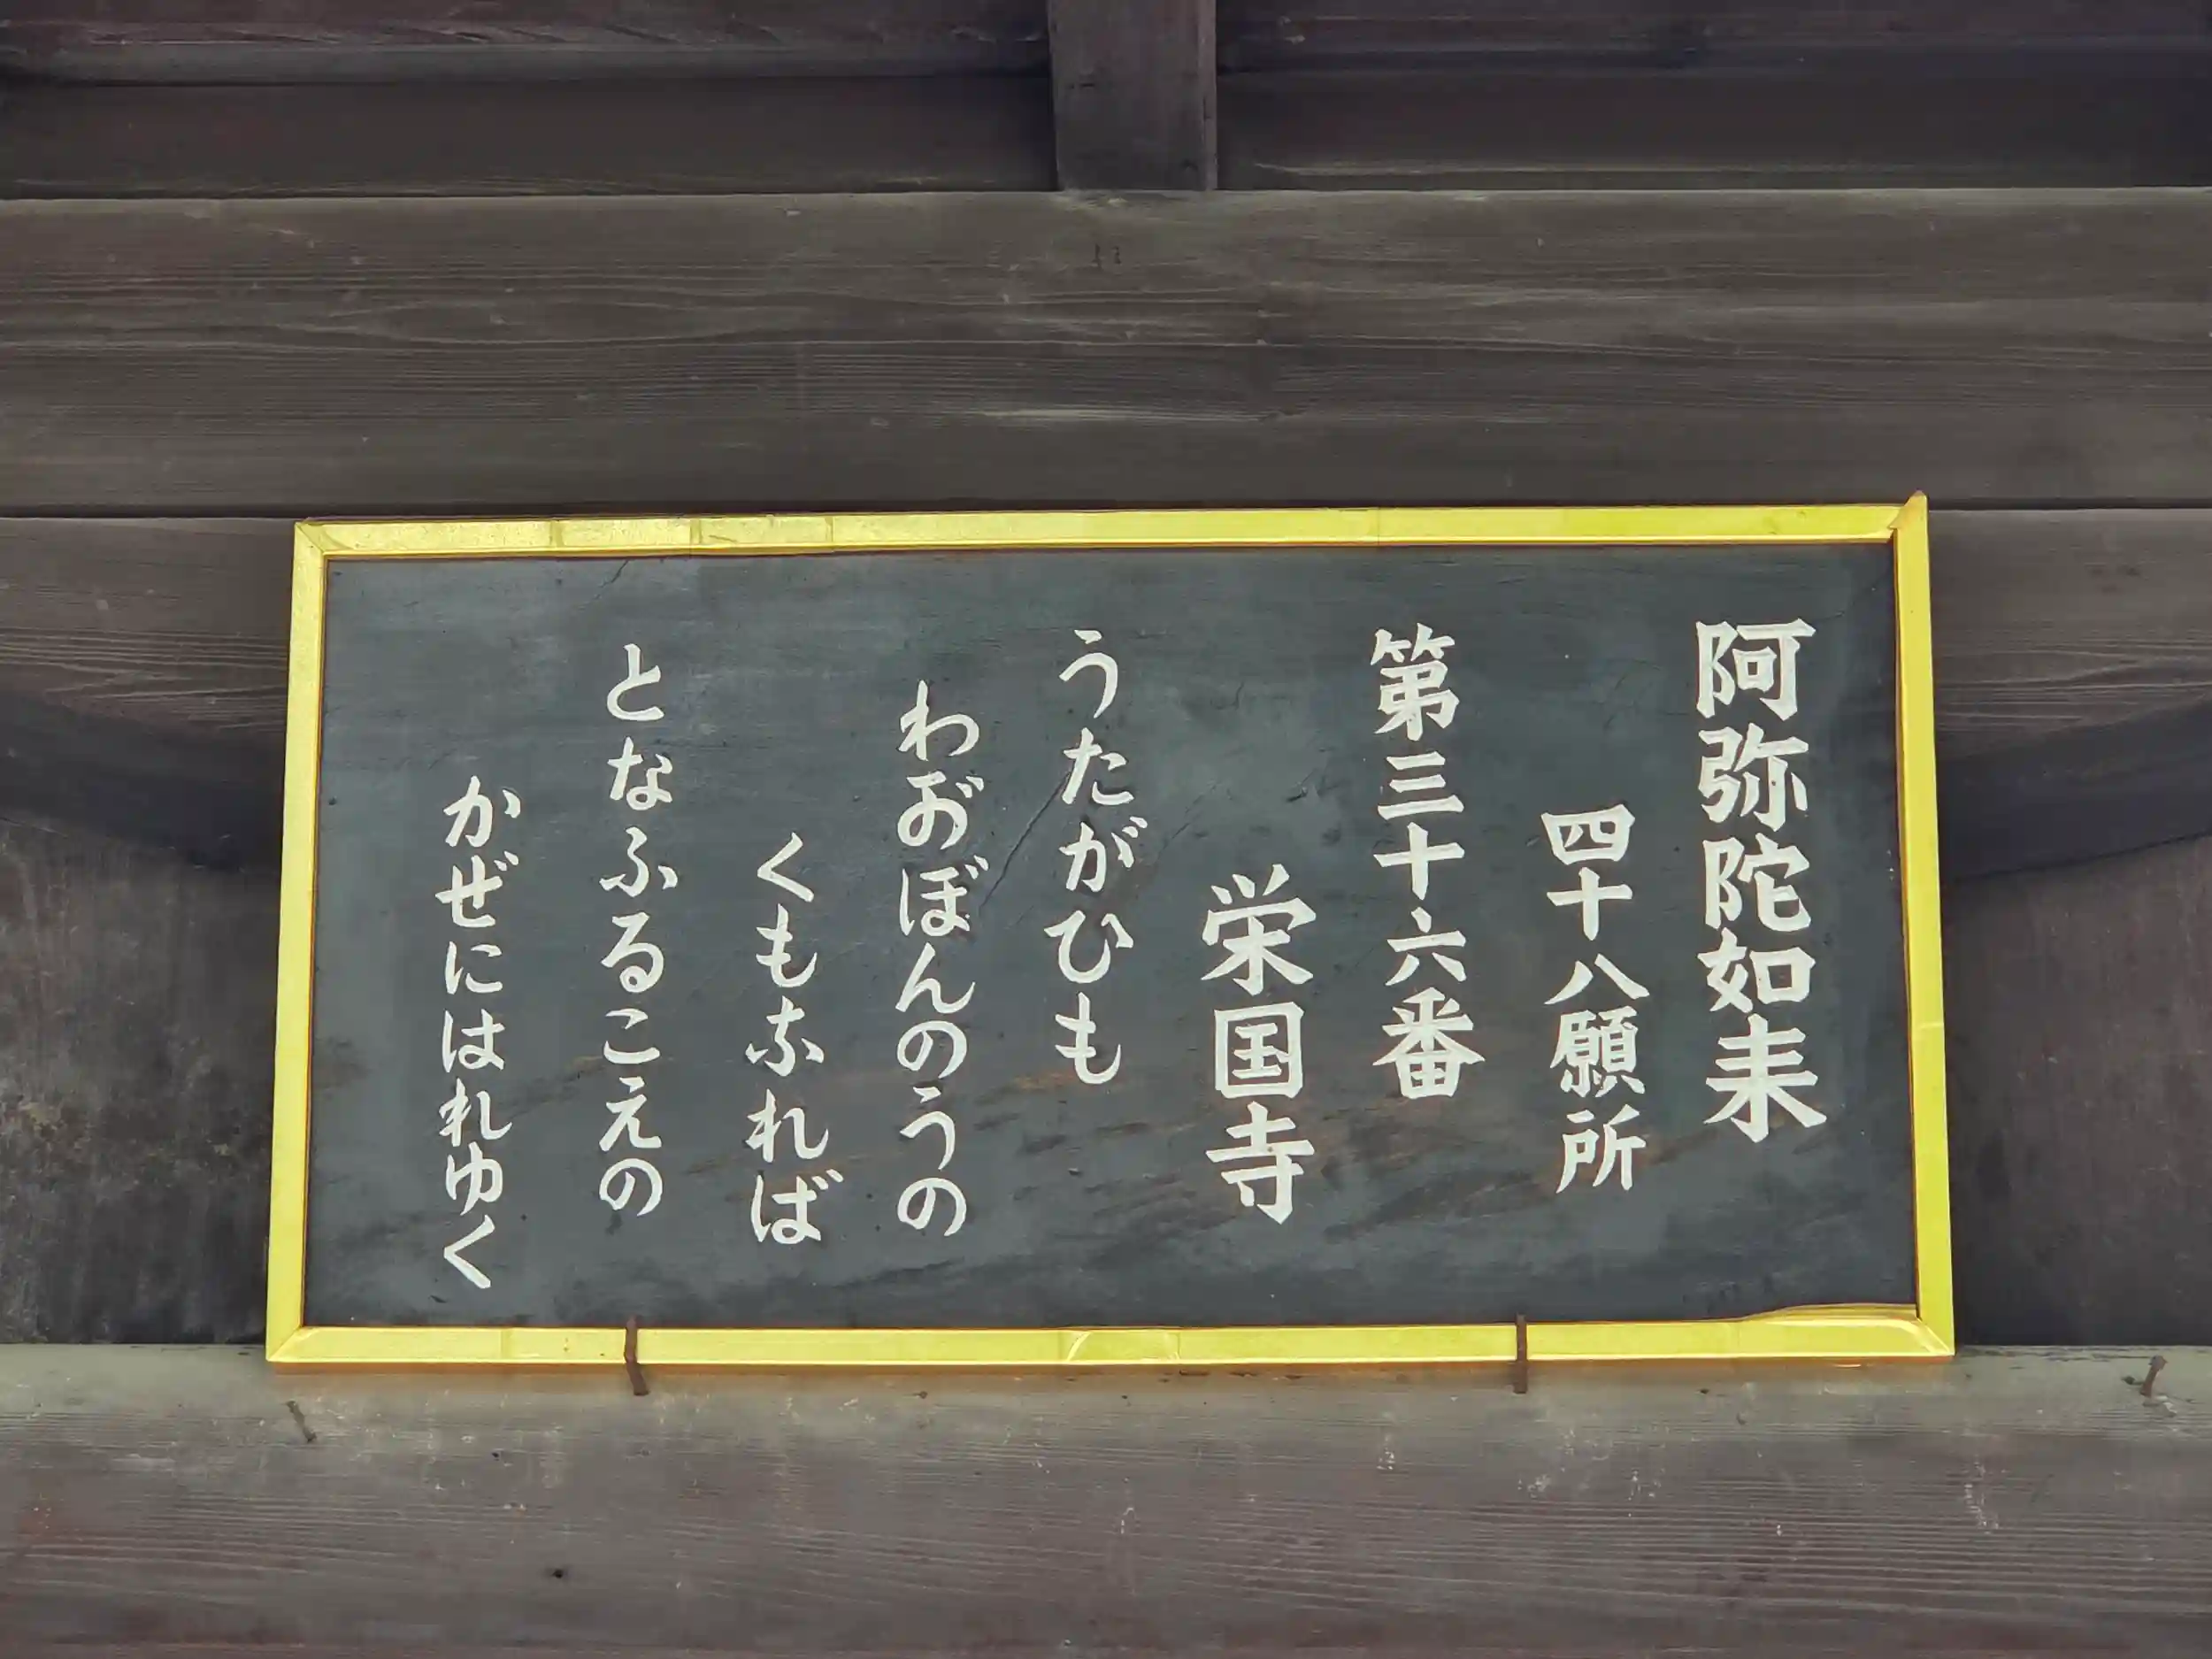 阿弥陀如来
四十八願所
第三十六番
栄国寺
うたがひも
わがぼんのうの
くもなれば
となふるこえの
かぜにはれゆく